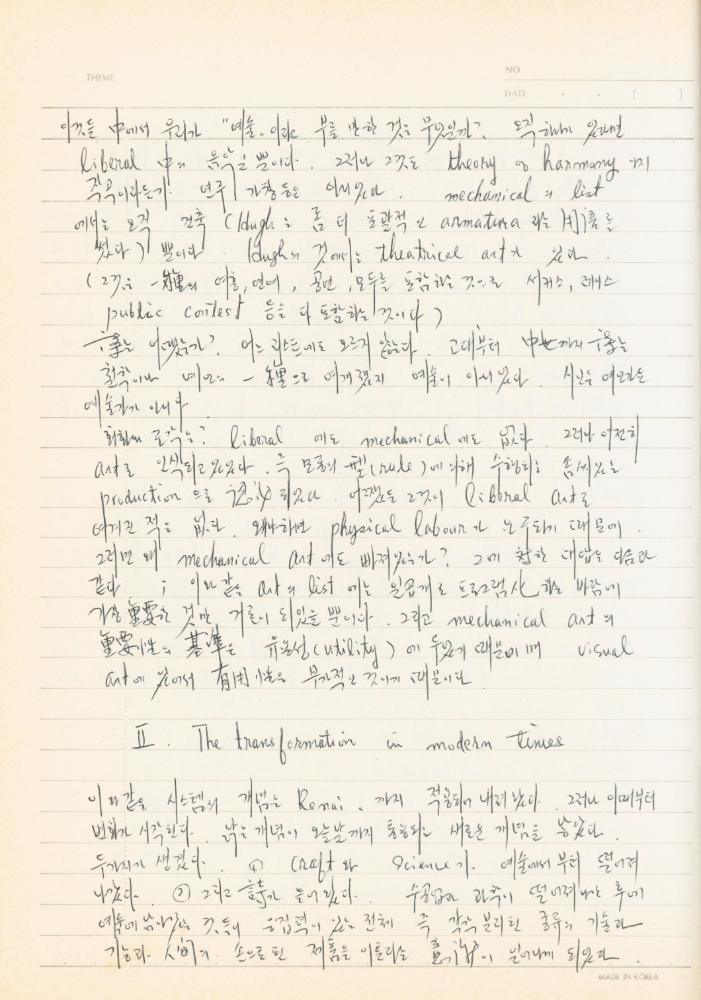 THEME
NO
DATE . . ( )
이것들 中에서 우리가 "예술"이라 부를 만한 것은 무엇일까? 오직 하나 있다면
liberal 中의 음악일 뿐이다. 그러나 그것도 theory of harmony 이지
작곡이라든가 연주 가창 등은 아니었다. mechanical의 list
에서는 오직 건축 (Hugh는 좀 더 포괄적인 armatura 라는 用語를
썼다) 뿐이다. Hugh의 것에서는 theatrical art가 있다.
(그것은 一種의 예술, 연예, 공연, 모두를 포함하는 것으로 서커스, 레이스
public contest 등을 다 포함하는 것이다)
詩는 어떠했는가? 어느 리스트에도 오르지 않는다. 고대부터 中世까지 詩는
철학이나 예언의 一種으로 여겨졌지 예술이 아니었다. 시인은 예언가이지
예술가가 아니다
회화와 조각은? liberal 에도 mechanical에도 없다. 그러나 여전히
art로 인식되고 있었다. 즉 모두의 型(rule)에 의해 수행되는 솜씨있는
production 으로 認識되었다. 어쨌든 그것이 liberal art로
여겨진 적은 없다. 왜냐하면 physical labour가 요구되기 때문에.
그러면 왜 mechanical art에도 빠져있는가? 그에 對한 대답은 다음과
같다 ; 이와 같은 art의 list에는 일곱개로 프로그램化 하는 바람에
가장 重要한 것만 거론이 되었을 뿐이다. 그리고 mechanical art의
重要性의 基準은 유용성(utility)에 두었기 때문이며 visual
art에 있어서 有用性은 부가적인 것이기 때문이다
II. The transformation in modern times
이와같은 시스템의 개념은 Renai. 까지 적용되어 내려왔다. 그러나 이때부터
변화가 시작된다. 낡은 개념이 오늘날까지 통용되는 새로운 개념을 낳았다.
두가지가 생겼다. ① craft와 science가 예술에서부터 떨어져
나갔다. ② 그리고 詩가 들어왔다. 수공업과 과학이 떨어져나간 후에
예술에 남아있는 것들의 응집력이 있는 전체 즉 각각 분리된 종류의 기술과
기능과 人間의 손으로 된 제품을 이룬다는 意識이 일어나게 되었다.
MADE IN KOREA